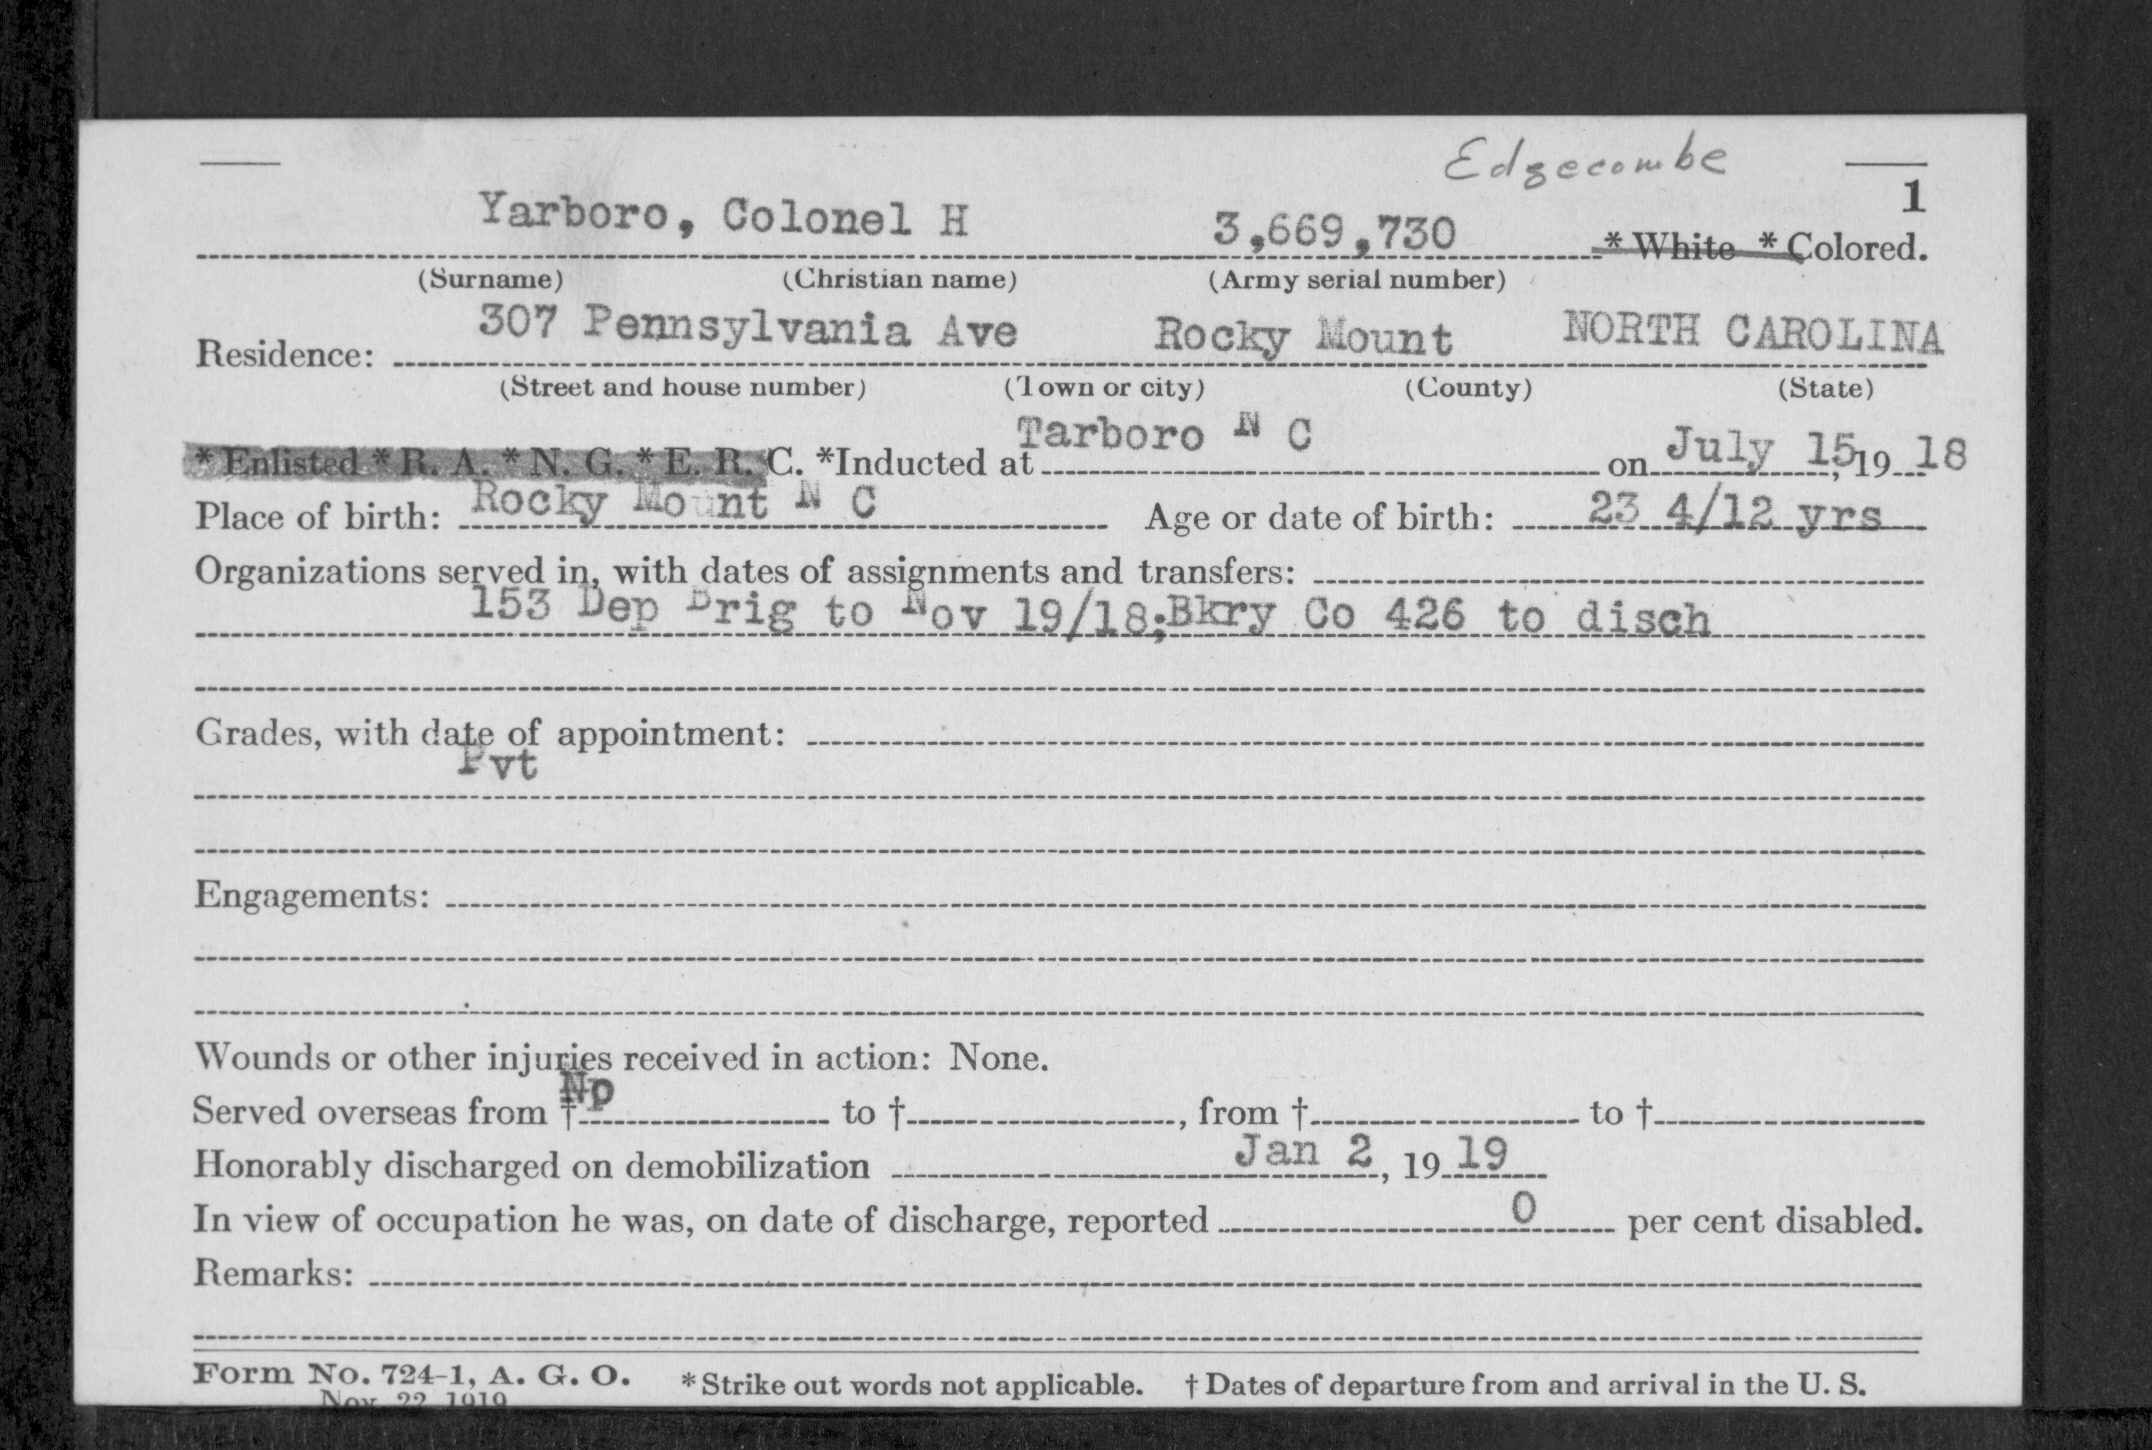 Edgecombe
1
Yarboro, Colonel H 3,669,730 * White * Colored.
(Surname) (Christian name) (Army serial number)
307 Pennsylvania Ave Rocky Mount NORTH CAROLINA
Residence:
(Street and house number) (Town or city) (County) (State)
* Enlisted * R. A. * N. G. * E. R. C. *Inducted at Tarboro N C on July 15, 19 18
Place of birth: Rocky Mount N C Age or date of birth: 23 4/12 yrs
Organizations served in, with dates of assignments and transfers:
153 Dep Brig to Nov 19/18; Bkry Co 426 to disch
Grades, with date of appointment:
Pvt
Engagements:
Wounds or other injuries received in action: None.
Served overseas from † No to †, from † to †
Honorably discharged on demobilization Jan 2, 19 19
In view of occupation he was, on date of discharge, reported 0 per cent disabled.
Remarks:
Form No. 724-1, A. G. O. * Strike out words not applicable. † Dates of departure from and arrival in the U. S.
Nov. 22, 1919